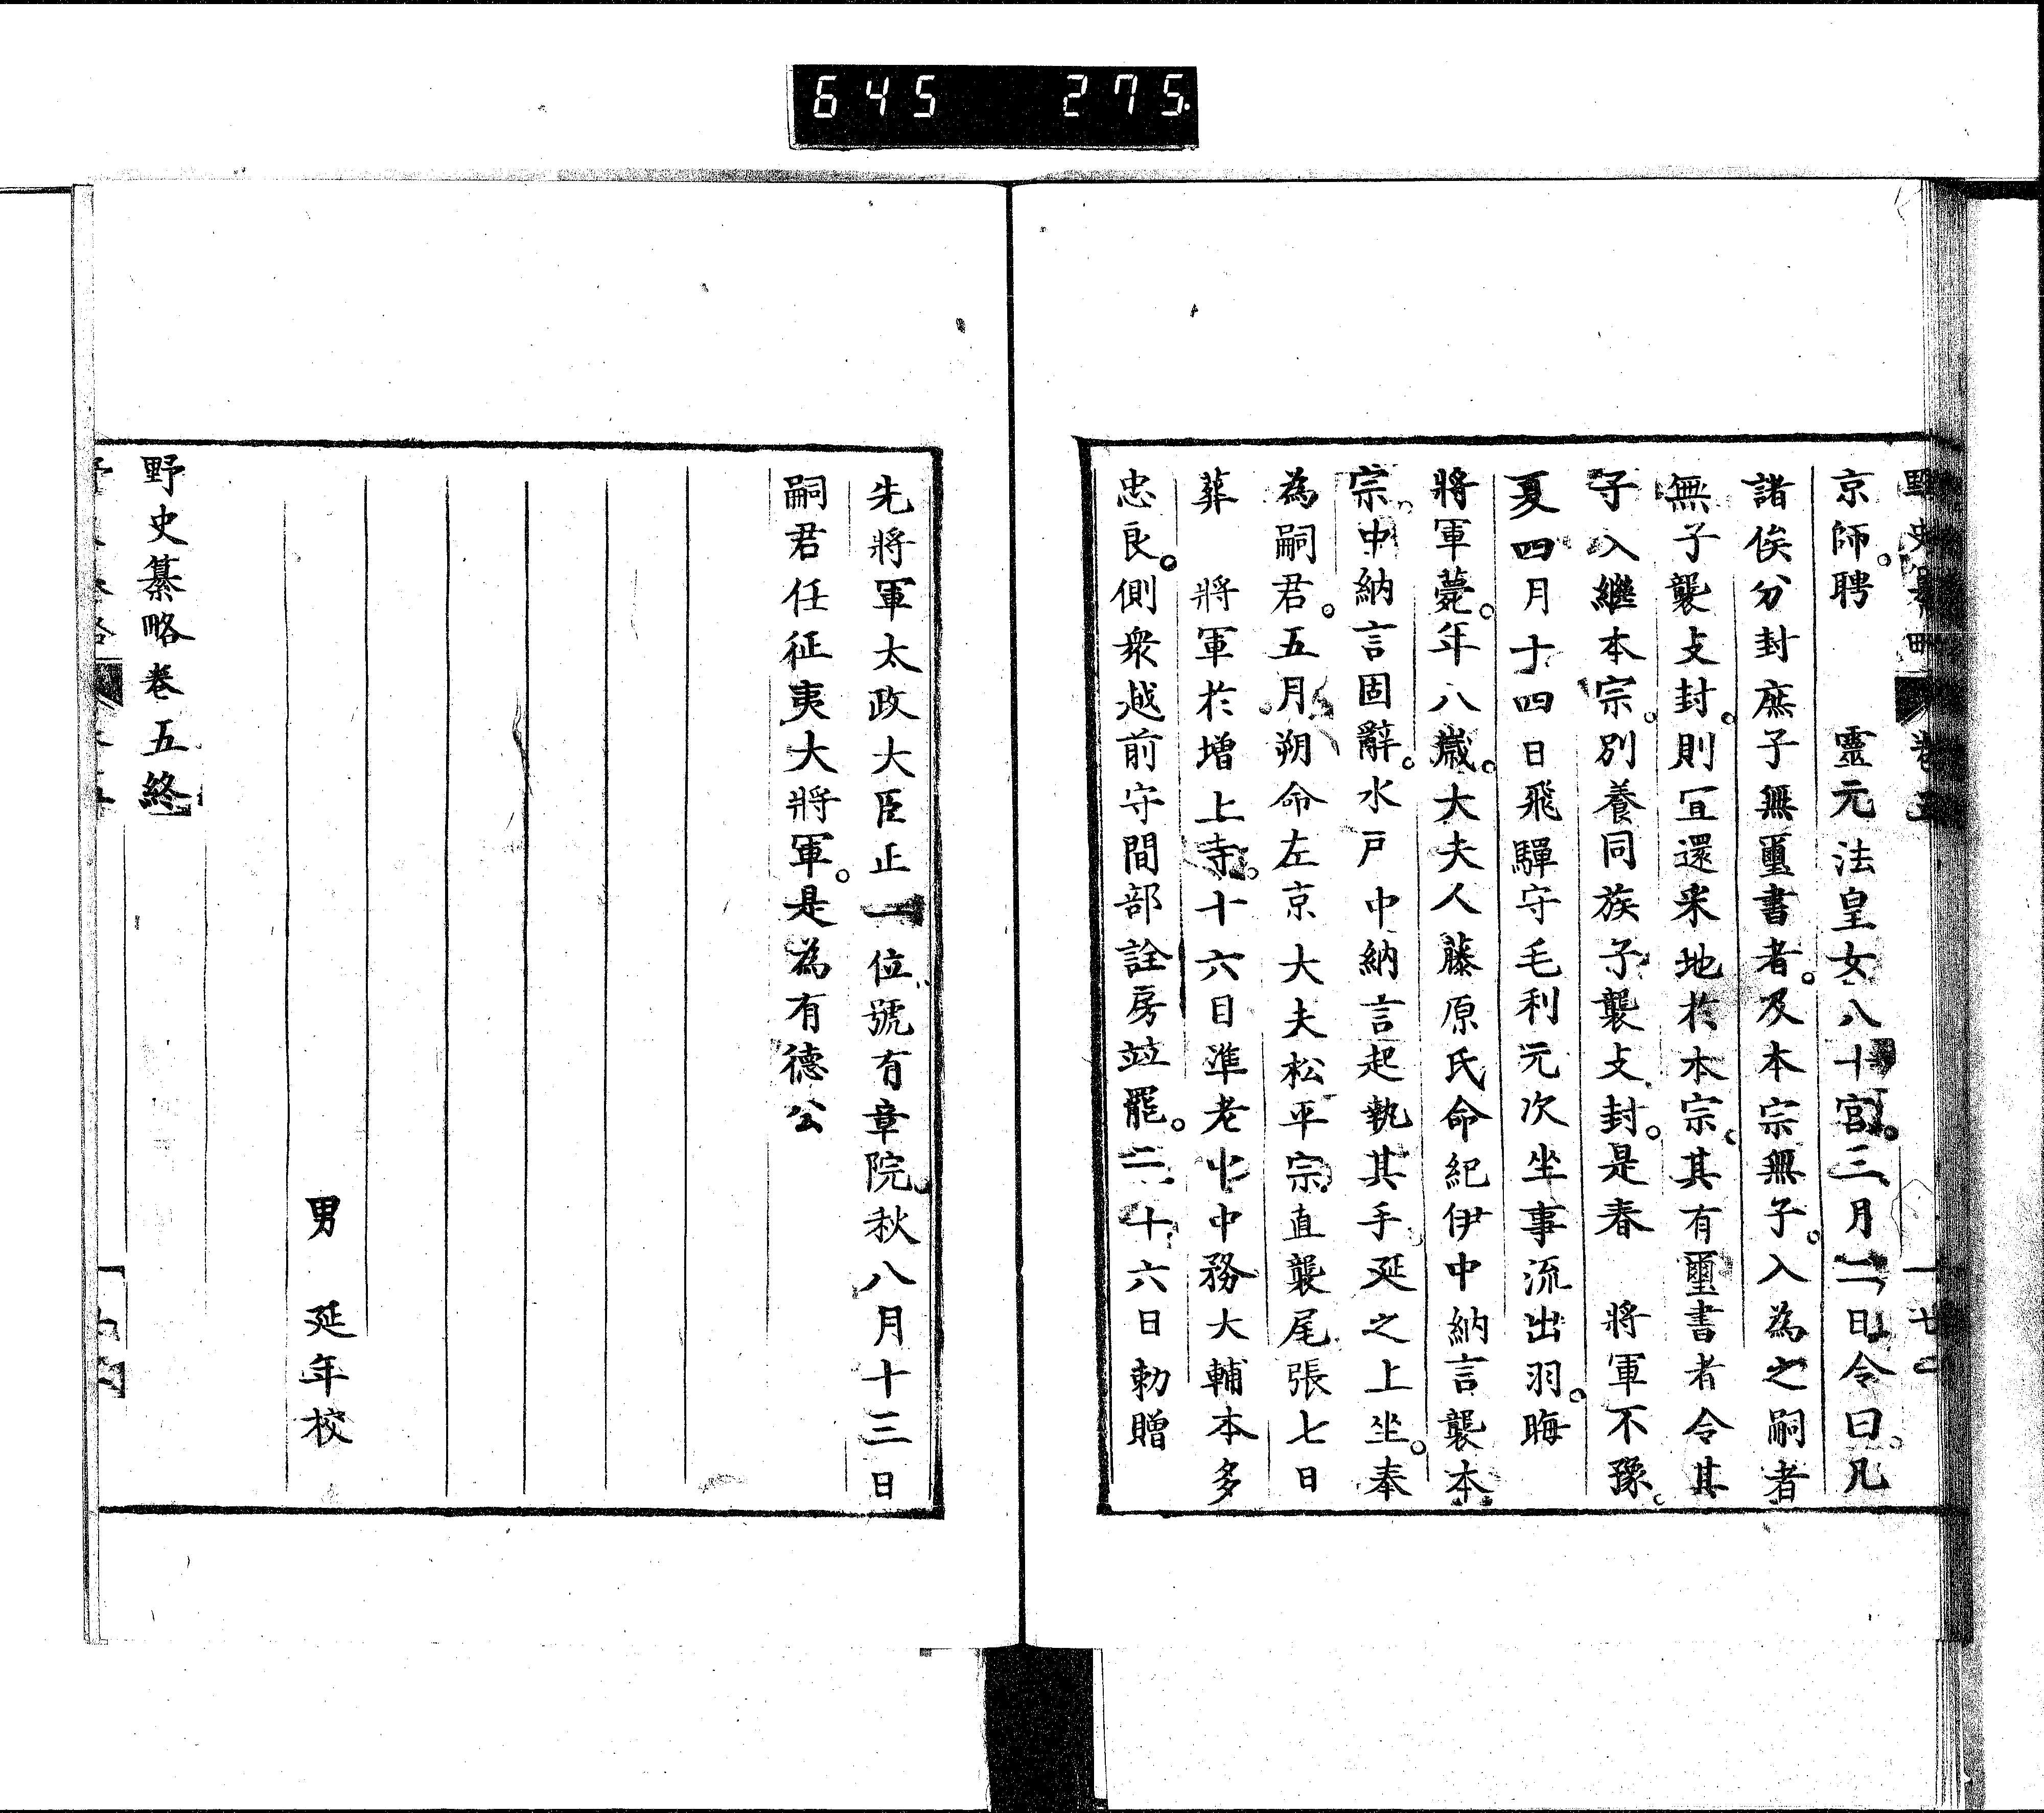 645 275.
野史纂略 卷五 廿二
京師。聘 靈元法皇女八十宮。三月二日令曰。凡
諸侯分封庶子無璽書者。及本宗無子。入為之嗣者
無子襲攴封。則宜還釆地於本宗。其有璽書者令其
子入繼本宗。別養同族子襲攴封。是春 將軍不豫。
夏四月十四日飛騨守毛利元次坐事流出羽。晦
將軍薨。年八歲。大夫人藤原氏命紀伊中納言襲本
宗。中納言固辭。水戸中納言起執其手延之上坐。奉
為嗣君。五月朔命左京大夫松平宗直襲尾張七日
葬 將軍於增上寺。十六日準老中中務大輔本多
忠良。側衆越前守間部詮房竝罷。二十六日勅贈
先將軍太政大臣正一位號有章院秋八月十三日
嗣君任征夷大將軍。是為有德公
男 延年校
野史纂略卷五終